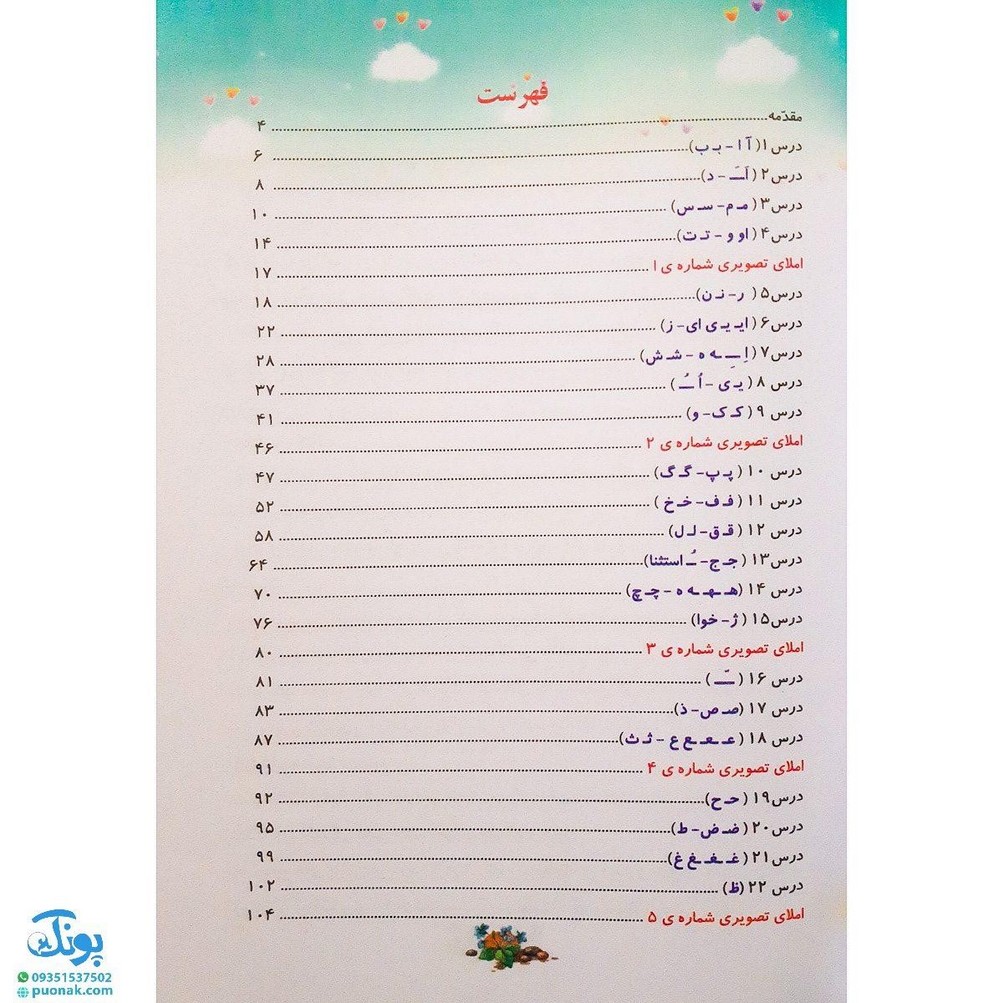 فهرست
مقدّمه ........ ۴
درس۱( آ ا - بـ ب) ........ ۶
درس۲ ( اَ ـَ - د) ........ ۸
درس۳ ( مـ م- سـ س) ........ ۱۰
درس۴ ( او و - تـ ت) ........ ۱۴
املای تصویری شماره ی ۱ ........ ۱۷
درس۵ ( ر- نـ ن) ........ ۱۸
درس۶ ( ایـ یـ ی ای- ز) ........ ۲۲
درس۷ ( اِ ـِ ـه ه - شـ ش) ........ ۲۸
درس ۸ ( یـ ی - اُ ـُ ) ........ ۳۷
درس ۹ ( کـ ک- و) ........ ۴۱
املای تصویری شماره ی ۲ ........ ۴۶
درس ۱۰ ( پـ پ- گـ گ) ........ ۴۷
درس ۱۱ ( فـ ف- خـ خ ) ........ ۵۲
درس ۱۲ ( قـ ق- لـ ل) ........ ۵۸
درس۱۳ ( جـ ج- ـُ استثنا) ........ ۶۴
درس ۱۴ (هـ ـهـ ـه ه - چـ چ) ........ ۷۰
درس۱۵ ( ژ- خوا) ........ ۷۶
املای تصویری شماره ی ۳ ........ ۸۰
درس ۱۶ ( ـّ ) ........ ۸۱
درس ۱۷ (صـ ص- ذ) ........ ۸۳
درس ۱۸ ( عـ ـعـ ـع ع - ثـ ث) ........ ۸۷
املای تصویری شماره ی ۴ ........ ۹۱
درس۱۹ ( حـ ح) ........ ۹۲
درس۲۰ ( ضـ ض- ط) ........ ۹۵
درس۲۱ ( غـ ـغـ ـغ غ) ........ ۹۹
درس ۲۲ (ظ) ........ ۱۰۲
املای تصویری شماره ی ۵ ........ ۱۰۴
پونک
09351537502
puonak.com